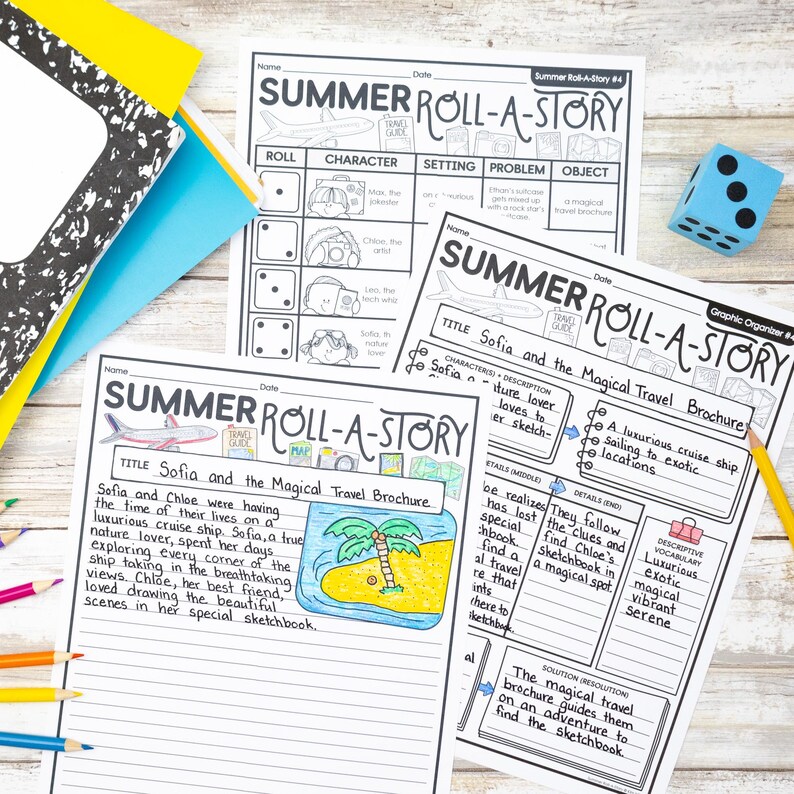 Name
Date
Summer Roll-A-Story #4
SUMMER ROLL-A-STORY
TRAVEL GUIDE
ROLL
CHARACTER
SETTING
PROBLEM
OBJECT
Max, the
jokester
Ethan's suitcase
gets mixed up
with a rock star's
suitcase.
a magical
travel brochure
Chloe, the
artist
Leo, the
tech whiz
Sofia, th
nature
lover
Name
Date
Graphic Organizer #4
SUMMER ROLL-A-STORY
TRAVEL GUIDE
TITLE Sofia and the Magical Travel Brochure
CHARACTER(S) + DESCRIPTION
Sofia a nature lover
loves to
her sketch-
A luxurious cruise ship
sailing to exotic
locations
DETAILS (MIDDLE)
realizes
has lost
special
book.
find a
travel
re that
ints
where to
sketchbook.
DETAILS (END)
They follow
the clues and
find Chloe's
sketchbook in
a magical spot.
DESCRIPTIVE
VOCABULARY
Luxurious
exotic
magical
vibrant
serene
SOLUTION (RESOLUTION)
The magical travel
brochure guides them
on an adventure to
find the sketchbook.
Name
Date
SUMMER ROLL-A-STORY
TRAVEL GUIDE
MAP
TITLE Sofia and the Magical Travel Brochure
Sofia and Chloe were having
the time of their lives on a
luxurious cruise ship. Sofia, a true
nature lover, spent her days
exploring every corner of the
ship taking in the breathtaking
views. Chloe, her best friend,
loved drawing the beautiful
scenes in her special sketchbook.